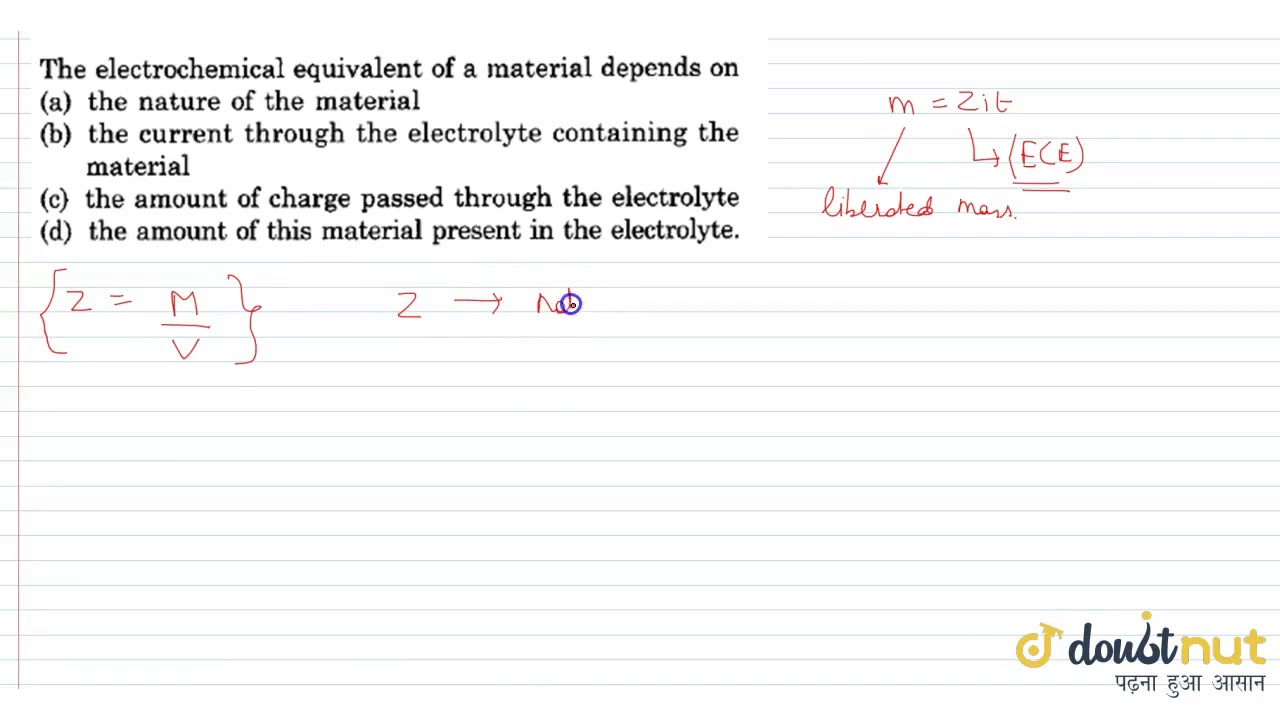 The electrochemical equivalent of a material depends on
(a) the nature of the material
(b) the current through the electrolyte containing the
material
(c) the amount of charge passed through the electrolyte
(d) the amount of this material present in the electrolyte.
m = Zit
(ECE)
liberated mass.
{Z = M/V}
Z → Nat
doubtnut
पढ़ना हुआ आसान